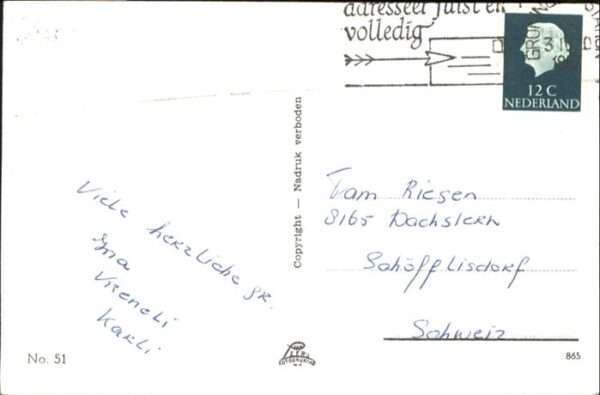 adresseer juist en
volledig
12 C
NEDERLAND
Copyright — Nadruk verboden
Viele herzliche gr.
Ina
Vreneli
Karli
Fam Riesen
8165 Wachslern
Schöfflisdorf
Schweiz
No. 51
865